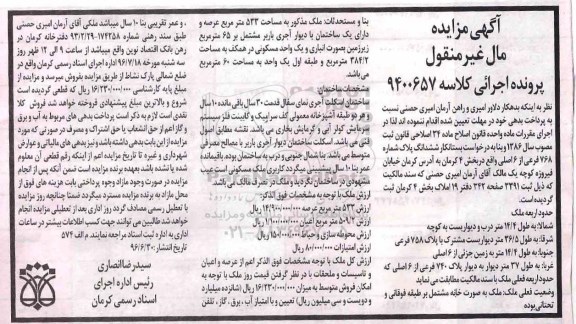 آگهی مزایده
مال غیر منقول
پرونده اجرائی کلاسه ۹۴۰۰۶۵۷
نظر به اینکه بدهکار دلاور امیری و راهن آرمان امیری حصنی نسبت
به پرداخت بدهی خود در مهلت تعیین شده اقدام ننموده اند لذا در
اجرای مقررات ماده واحده قانون اصلاح ماده ۳۴ اصلاحی قانون ثبت
مصوب سال ۱۳۸۶ و بنا به درخواست بستانکار ششدانگ پلاک شماره
۷۶۸ فرعی از ۶ اصلی واقع در بخش ۴ کرمان به آدرس کرمان خیابان
فیروزه کوچه یک مالک آقای آرمان امیری حصنی که سند مالکیت
که ذیل ثبت ۲۲۹۱ صفحه ۲۴۲ دفتر ۱۹ املاک بخش ۴ کرمان ثبت
گردیده است.
حدود اربعه ملک
شمالا: به طول ۱۴/۴ متر درب و دیواریست به کوچه
شرقا: به طول ۳۶/۵ متر دیواریست مشترک با پلاک ۷۵۸ فرعی
جنوبا: به طول ۱۴/۴ متر به زمین جزئی از ۶ اصلی
غربا: به طول ۳۷ متر دیوار به دیوار پلاک ۷۴۰ فرعی از ۶ اصلی که
حدود اربعه فعلی ملک با سند مالکیت مطابقت می نماید
وضعیت فعلی ملک: ملک به صورت خانه مشتمل بر طبقه فوقانی و
تحتانی بوده
بنا و مستحدثات: ملک مذکور به مساحت ۵۳۳ متر مربع عرصه و
دارای یک ساختمان با دیوار آجری باربر مشتمل بر ۶۵ مترمربع
زیرزمین بصورت انباری و یک واحد مسکونی در همکف به مساحت
۳۸۴/۲ مترمربع و طبقه اول یک واحد به مساحت ۶۰ مترمربع
می باشد.
مشخصات ساختمان
ساختمان اسکلت آجری نمای سفال قدمت ۳۰ سال باقی مانده ۱۰ سال
و هر دو طبقه آشپزخانه معمولی کف سرامیک و کابینت فلز سیستم
سرمایش کولر آبی و گرمایش بخاری می باشد. نقشه مطابق اصول
فنی می باشد. اسکلت ساختمان دیوار آجری باربر با مصالح مصرفی
متوسط می باشد. بنا شمال جنوبی و درب به ساختمان بوده باقیمانده
عمر بنا ۱۰ سال پیشبینی میگردد کاربری ملک مسکونی است عیب
مشهودی در ساختمان نگردید و ملک در تصرف مالک می باشد.
ارزش ملک با توجه به مشخصات فوق الذکر:
ارزش ۵۳۳ متر مربع عرصه ۱۴/۹۰۰/۰۰۰/۰۰۰ ریال
ارزش ۵۰۹/۲ متر مربع اعیان ۱/۱۰۰/۰۰۰/۰۰۰ ریال
ارزش محوطه سازی و حیاط ۱۵۰/۰۰۰/۰۰۰ ریال
ارزش امتیازات ۸۰/۰۰۰/۰۰۰ ریال
ارزش کل ملک با توجه مشخصات فوق الذکر اعم از عرصه و اعیان
و تاسیسات و ملحقات با در نظر گرفتن قیمت روز ملک با توجه به
امکان فروش متوسط به میزان ۱۶/۲۳۰/۰۰۰/۰۰۰ ریال (شانزده میلیارد
و دویست و سی میلیون ریال) تعیین و با امتیاز آب، برق، گاز، تلفن
، و عمر تقریبی بنا ۱۰ سال میباشد ملکی آقای آرمان امیری حصنی
طبق سند رهنی شماره ۱۷۴۲۵۸-۹۳/۲/۲۹ دفترخانه کرمان در
رهن بانک اقتصاد نوین واقع میباشد از ساعت ۹ الی ۱۲ ظهر روز
سه شنبه مورخه ۹۶/۷/۱۸ اداره اجرای اسناد رسمی کرمان واقع در
ضلع شمالی پارک نشاط از طریق مزایده بفروش میرسد و مزایده از
مبلغ پایه کارشناسی ۱۶/۲۳۰/۰۰۰/۰۰۰ ریال که قطعی گردیده است
شروع و بالاترین مبلغ پیشنهادی فروخته خواهد شد فروش کلا
نقدی است لازم به ذکر است پرداخت بدهی های مربوط به آب و برق
و گاز اعم از حق انشعاب یا حق اشتراک و مصرف در صورتی که مورد
مزایده از این بابت بدهی داشته باشد، و نیز بدهی های مالیاتی و عوارض
شهرداری و غیره تا تاریخ مزایده اعم از اینکه رقم قطعی آن معلوم
شده یا نشده باشد بعهده برنده مزایده است ضمن آنکه پس از انجام
مزایده در صورت وجود مازاد وجوه پرداختی بابت هزینه های فوق از
محل مازاد به برنده مزایده مسترد میگردد ضمنا چنانچه روز مزایده
با تعطیل رسمی مصادف گردد روز اداری بعد از تعطیلی مزایده انجام
خواهد شد طالبین می توانند جهت کسب اطلاعات بیشتر در ساعات
اداری به اداره ثبت اسناد مراجعه نمایند. م الف ۵۷۴
تاریخ انتشار: ۹۶/۶/۳۰
سید رضا انصاری
رئیس اداره اجرای
اسناد رسمی کرمان